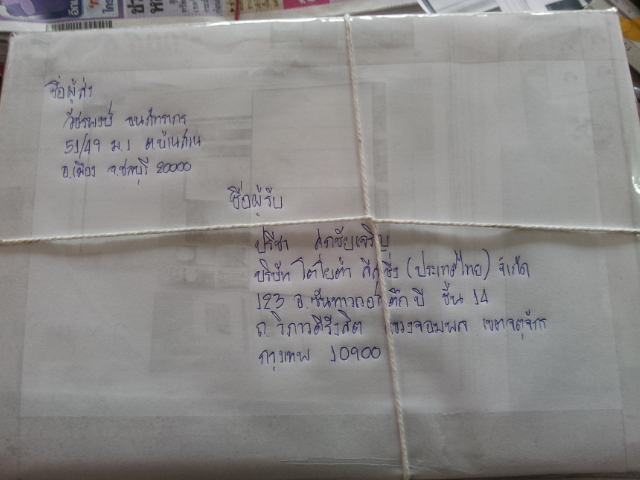 ชื่อผู้ส่ง
51/49 ม.1 ต.บ้านสวน
อ.เมือง จ.ชลบุรี 20000
ชื่อผู้รับ
ปรีชา
บริษัท โตโยต้า ลีสซิ่ง (ประเทศไทย) จำกัด
123 อ.ซันทาวเวอร์ ตึก บี ชั้น 14
ถ.วิภาวดีรังสิต แขวงจอมพล เขตจตุจักร
กรุงเทพ 10900